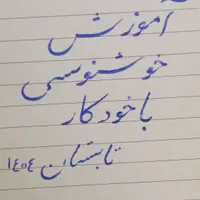 آموزش
خوشنویسی
با خودکار
تابستان ۱۴۰۴